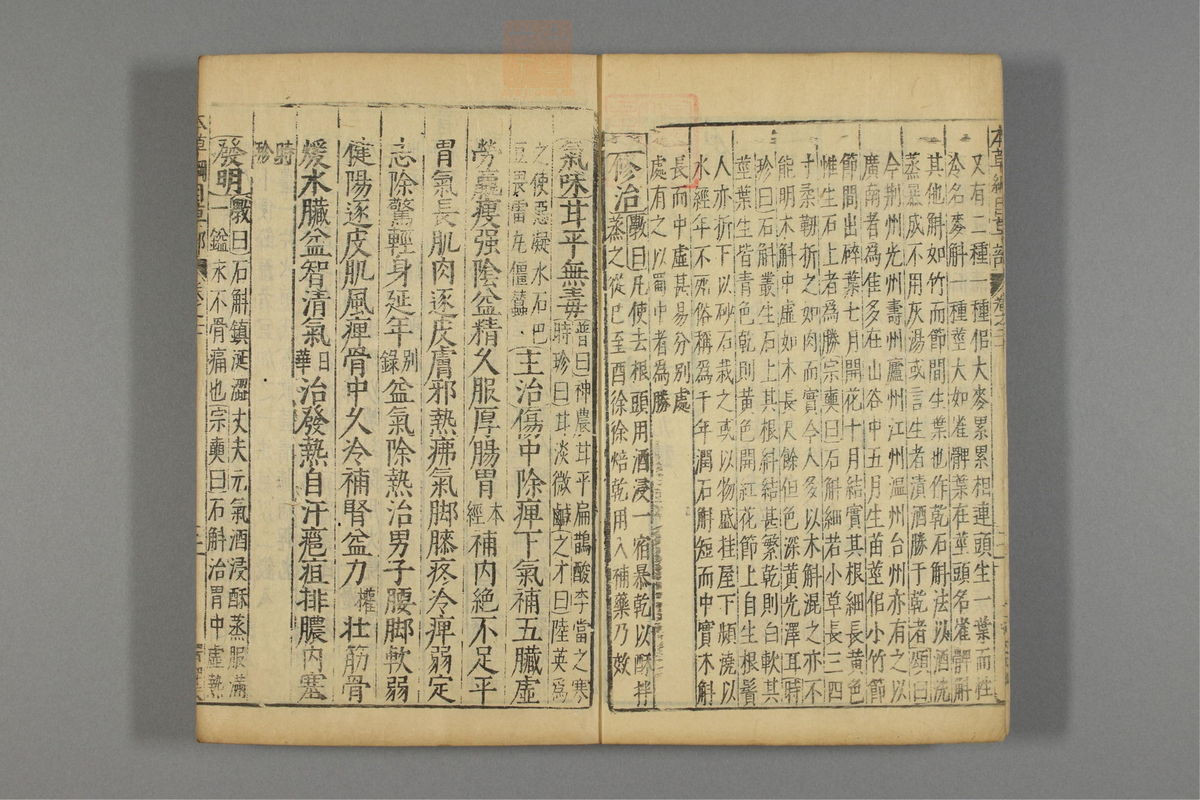 本草綱目草部 卷之二十
又有二種一種佀大麥累累相連頭生一葉而性
冷名麥斛一種莖大如雀髀葉在莖頭名雀髀斛
其他斛如竹而節間生葉也作乾石斛法以酒洗
蒸暴成不用灰湯或言生者漬酒勝于乾者頌曰
今荆州光州壽州廬州江州温州台州亦有之以
廣南者為佳多在山谷中五月生苗莖佀小竹節
節間出碎葉七月開花十月結實其根細長黄色
惟生石上者為勝宗奭曰石斛細若小草長三四
寸柔韌折之如肉而實今人多以木斛混之亦不
能明木斛中虛如木長尺餘但色深黄光澤耳時
珍曰石斛叢生石上其根糾結甚繁乾則白軟其
莖葉生皆青色乾則黄色開紅花節上自生根鬚
人亦折下以砂石栽之或以物盛挂屋下頻澆以
水經年不死俗稱為千年潤石斛短而中實木斛
長而中虛甚易分別處
處有之以蜀中者為勝
修治 斆曰凡使去根頭用酒浸一宿暴乾以酥拌
蒸之從巳至酉徐徐焙乾用入補藥乃效
氣味甘平無毒 普曰神農甘平扁鵲酸李當之寒
時珍曰甘淡微鹹之才曰陸英為
之使惡凝水石巴
豆畏雷丸僵蠶 主治傷中除痺下氣補五臟虛
勞羸瘦强陰益精久服厚腸胃 本經 補内絕不足平
胃氣長肌肉逐皮膚邪熱疿氣脚膝疼冷痺弱定
志除驚輕身延年 别錄 益氣除熱治男子腰脚軟弱
健陽逐皮肌風痺骨中久冷補腎益力 權 壯筋骨
煖水臟益智清氣 日華 治發熱自汗癰疽排膿内塞
時珍
發明 斆曰石斛鎮涎澀丈夫元氣酒浸酥蒸服滿
一鎰永不骨痛也宗奭曰石斛治胃中虛熱
本草綱目草部 卷之二十